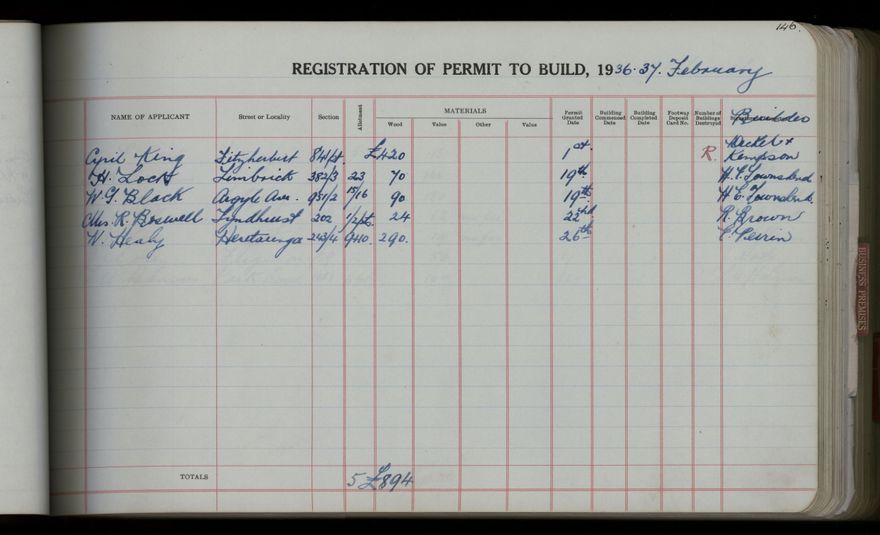 146.
REGISTRATION OF PERMIT TO BUILD, 1936-37. February
NAME OF APPLICANT Street or Locality Section Allotment MATERIALS Wood Value Other Value Permit Granted Date Building Commenced Date Building Completed Date Footway Deposit Card No. Number of Buildings Destroyed Builder
Cyril King Fitzherbert £420 1st R. Heckel & Kempson
H. Lock Limbrick 382/3 23 70 19th H. E. Townsend
W. G. Black Argyle Ave. 951/2 15/16 90 19th H. E. Townsend
Mrs. R. Boswell Lyndhurst 202 1/2 pt. 24 22nd R. Brown
W. Healy Heretaunga 243/4 9+10 290. 26th
TOTALS 5 £894
BUSINESS PREMISES